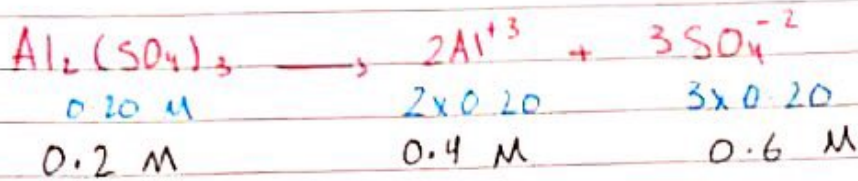 Al₂(SO₄)₃ ⟶ 2Al⁺³ + 3SO₄⁻²
0.20 M 2x0.20 3x0.20
0.2 M 0.4 M 0.6 M